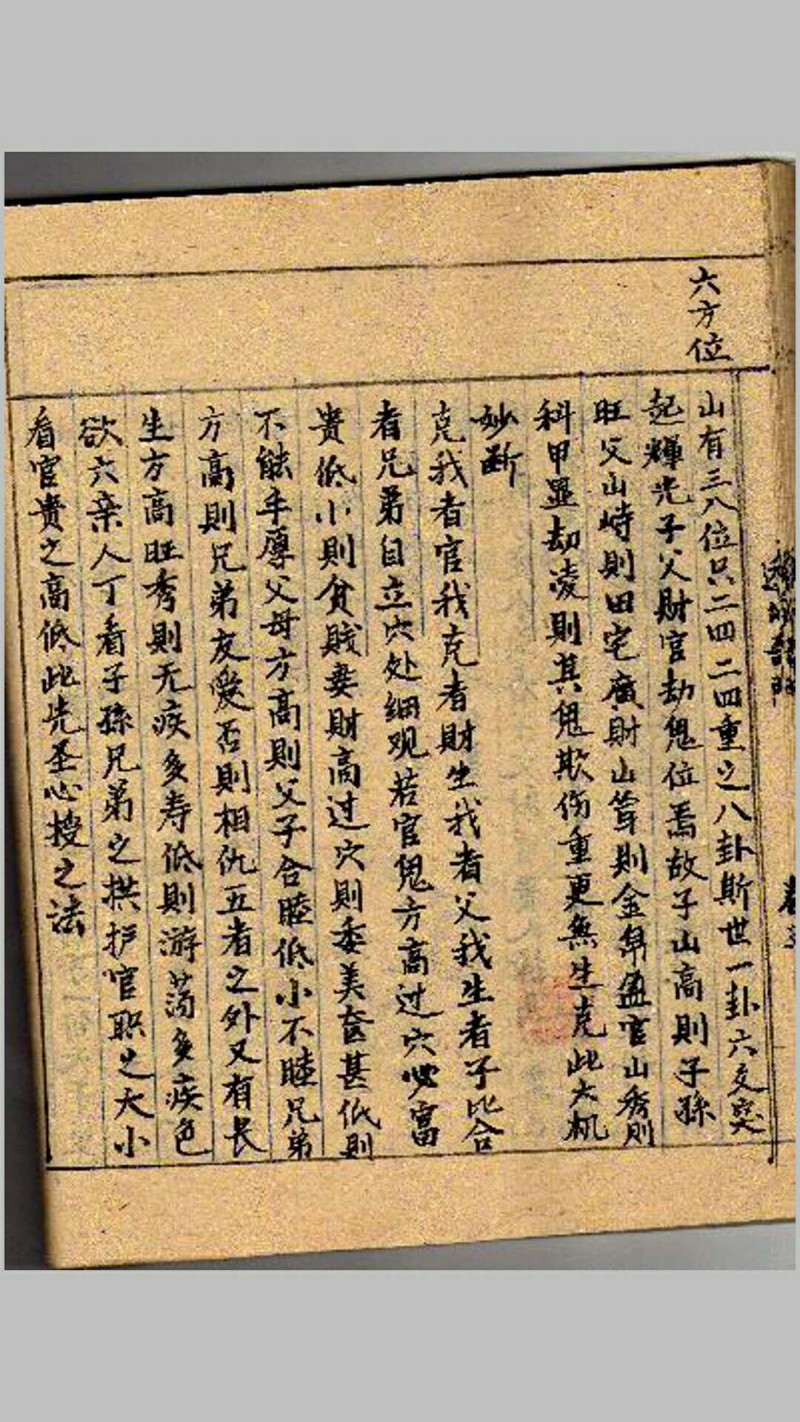 六方位
山有三八位只二四二四重之八卦斯世一卦六爻突
起輝光子父財官劫鬼位焉故子山高則子孫
旺父山峙則田宅廣財山聳則金帛盈官山秀則
科甲显劫凌則其鬼欺伤重更無生克此大机
妙断
克我者官我克者財生我者父我生者子比合
者兄弟自立穴处细观若官鬼方高过穴必富
贵低小則貧賤妻財高过穴則委美奩甚低則
不能丰厚父母方高則父子合睦低小不睦兄弟
方高則兄弟友愛否則相仇五者之外又有長
生方高旺秀則无疾多寿低則游荡多疾色
欲六亲人丁看子孫兄弟之拱护官职之大小
看官貴之高低此先圣心授之法